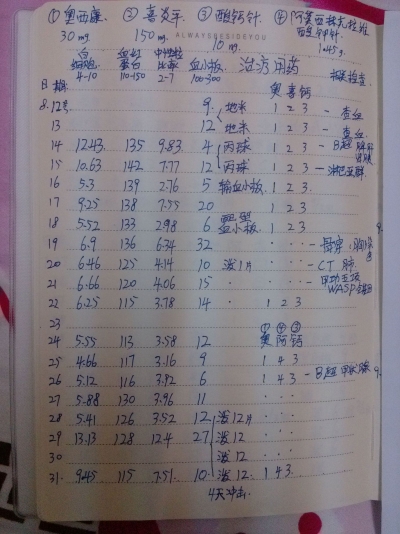 ① 奥西康 ② 喜炎平 ③ 酸钙针 ④ 阿莫西林
30mg 150mg 10mg 1.45g
ALWAYS BESIDE YOU
白细胞 血红蛋白 血小板 治疗用药
4-10 110-150 2-7 100-300
日期 奥 喜 钙
8.12号 9 地米 1 2 3 - 查血
13 12 地米 1 2 3 - 查血
14 12.43 135 9.83 4 丙球 1 2 3 - B超
15 10.63 142 7.77 12 丙球 1 2 3
16 5.3 139 2.76 5 输血小板 1 2 3
17 9.25 138 7.55 20 1 2 3
18 5.52 133 2.98 6 血小板 1 2 3
19 6.9 136 6.34 32 - 骨穿
20 6.46 125 4.14 10 泼1片 - CT 肺
21 6.66 120 4.06 15 - 甲功五项 WASP
22 6.25 115 3.78 14 1 2 3
23 ① ④ ③
24 5.55 113 3.58 12 奥 阿 钙
25 4.66 117 3.16 9 1 4 3
26 5.12 116 3.92 6 1 4 3 - B超
27 5.88 130 3.96 11
28 5.41 126 3.52 12 泼12片
29 13.13 128 12.4 27 泼12
30 泼12
31 9.45 115 7.51 10 泼12 1 4 3
4天冲击